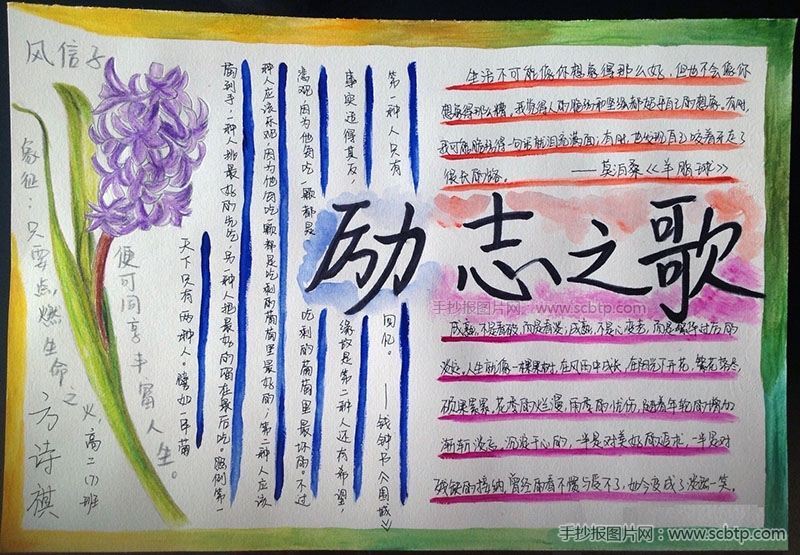 风信子
象征：只要点燃生命之
火，
便可同享丰富人生。
高二(7)班
方诗祺
天下只有两种人。譬如一串葡
萄到手，一种人挑最好的先吃，另一种人把最好的留在最后吃。照例第一
种人应该乐观，因为他每吃一颗都是吃剩的葡萄里最好的；第二种人应该
悲观，因为他每吃一颗都是
吃剩的葡萄里最坏的。不过
事实适得其反，
缘故是第二种人还有希望，
第一种人只有
回忆。——钱钟书《围城》
励志之歌
生活不可能像你想象得那么好，但也不会像你
想象得那么糟。我觉得人的脆弱和坚强都超乎自己的想象。有时，
我可能脆弱得一句话就泪流满面；有时，也发现自己咬着牙走了
很长的路。——莫泊桑《羊脂球》
手抄报图片网：www.scbtp.com
成熟，不是看破，而是看淡；成熟，不是心变老，而是繁华过后的
淡定。人生就像一棵果树，在风雨中成长，在阳光下开花，繁花落尽，
硕果累累。花季的烂漫，雨季的忧伤，随着年轮的增加
渐渐淡忘，沉淀于心的，一半是对美好的追求，一半是对
残缺的接纳。曾经的看不惯与受不了，如今变成了淡然一笑。
手抄报图片网：www.scbtp.com